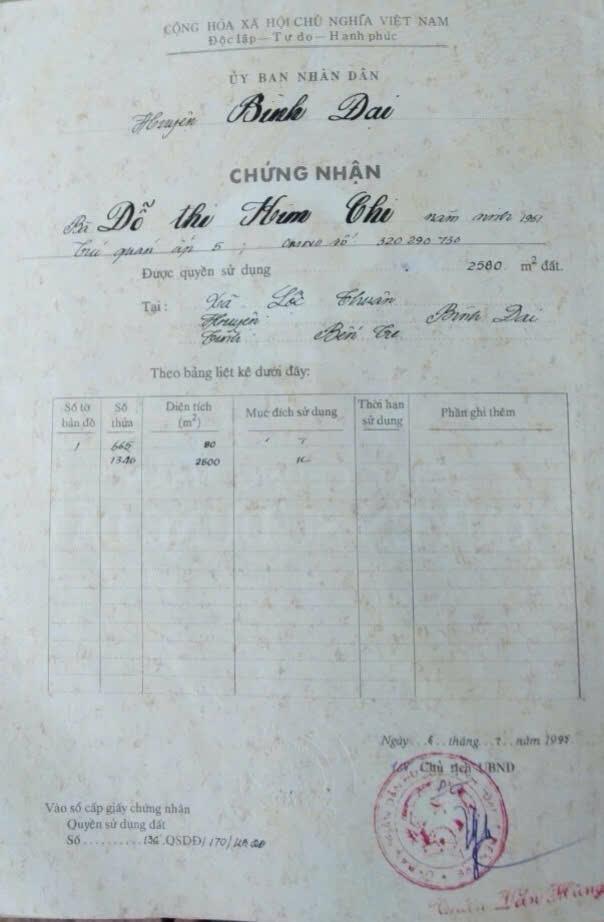 CỘNG HÒA XÃ HỘI CHỦ NGHĨA VIỆT NAM
Độc lập — Tự do — Hạnh phúc
ỦY BAN NHÂN DÂN
Huyện Bình Đại
CHỨNG NHẬN
Bà Đỗ thị Kim Chi năm sinh 1961
Trú quán ấp 5 ; CMND số: 320 290 730
Được quyền sử dụng 2580 m² đất.
Tại : Xã Lộc Thuận
Huyện Bình Đại
Tỉnh Bến Tre
Theo bảng liệt kê dưới đây:
Số tờ bản đồ Số thửa Diện tích (m²) Mục đích sử dụng Thời hạn sử dụng Phần ghi thêm
1 665 80 " T
1340 2500
Ngày . . . tháng . . . năm 1995
Chủ tịch UBND
Vào sổ cấp giấy chứng nhận
Quyền sử dụng đất
Số . . . . . . . . . . 136 .QSDĐ/170/
Văn